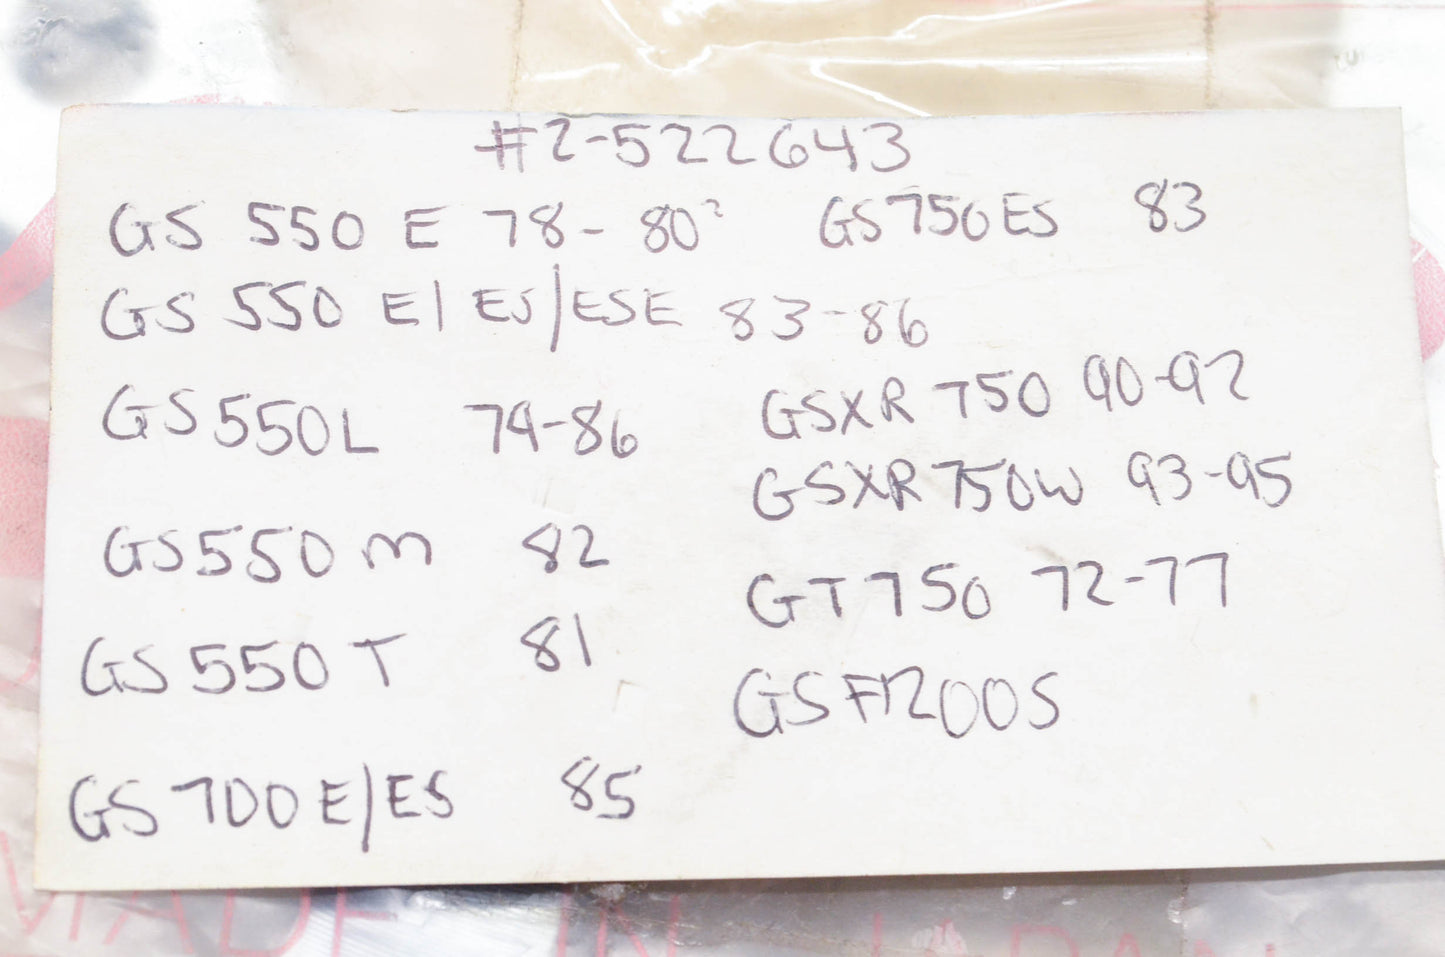 #2-522643
GS 550 E 78-80? GS750ES 83
GS 550 E/ ES/ESE 83-86
GS550L 79-86
GSXR 750 90-92
GSXR 750W 93-95
GS550 M 82
GT 750 72-77
GS550 T 81
GSF1200S
GS 700 E/ES 85
MADE IN JAPAN